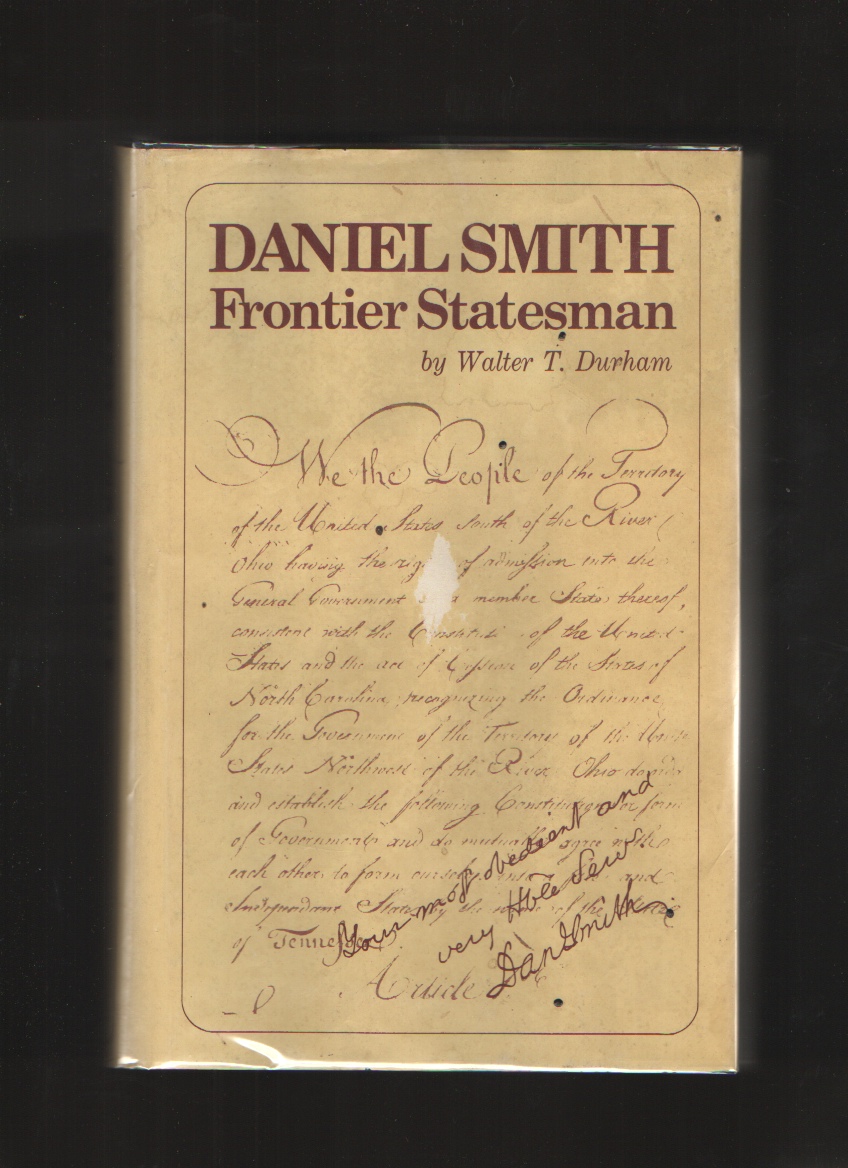 DANIEL SMITH
Frontier Statesman
by Walter T. Durham
We the People of the Territory
of the United States South of the River
Ohio having the right of admission into the
General Government a member State thereof,
consistent with the of the United
States and the act of Cession of the State of
North Carolina, recognizing the Ordinance
for the Government of the Territory of the
States Northwest of the River Ohio
and establish the following Constitution or form
of Government and do mutually agree with
each other to form and
Independent State by the of the
of Tennessee.
Article
Your most obedient and
very Hble Serv
Dan Smith